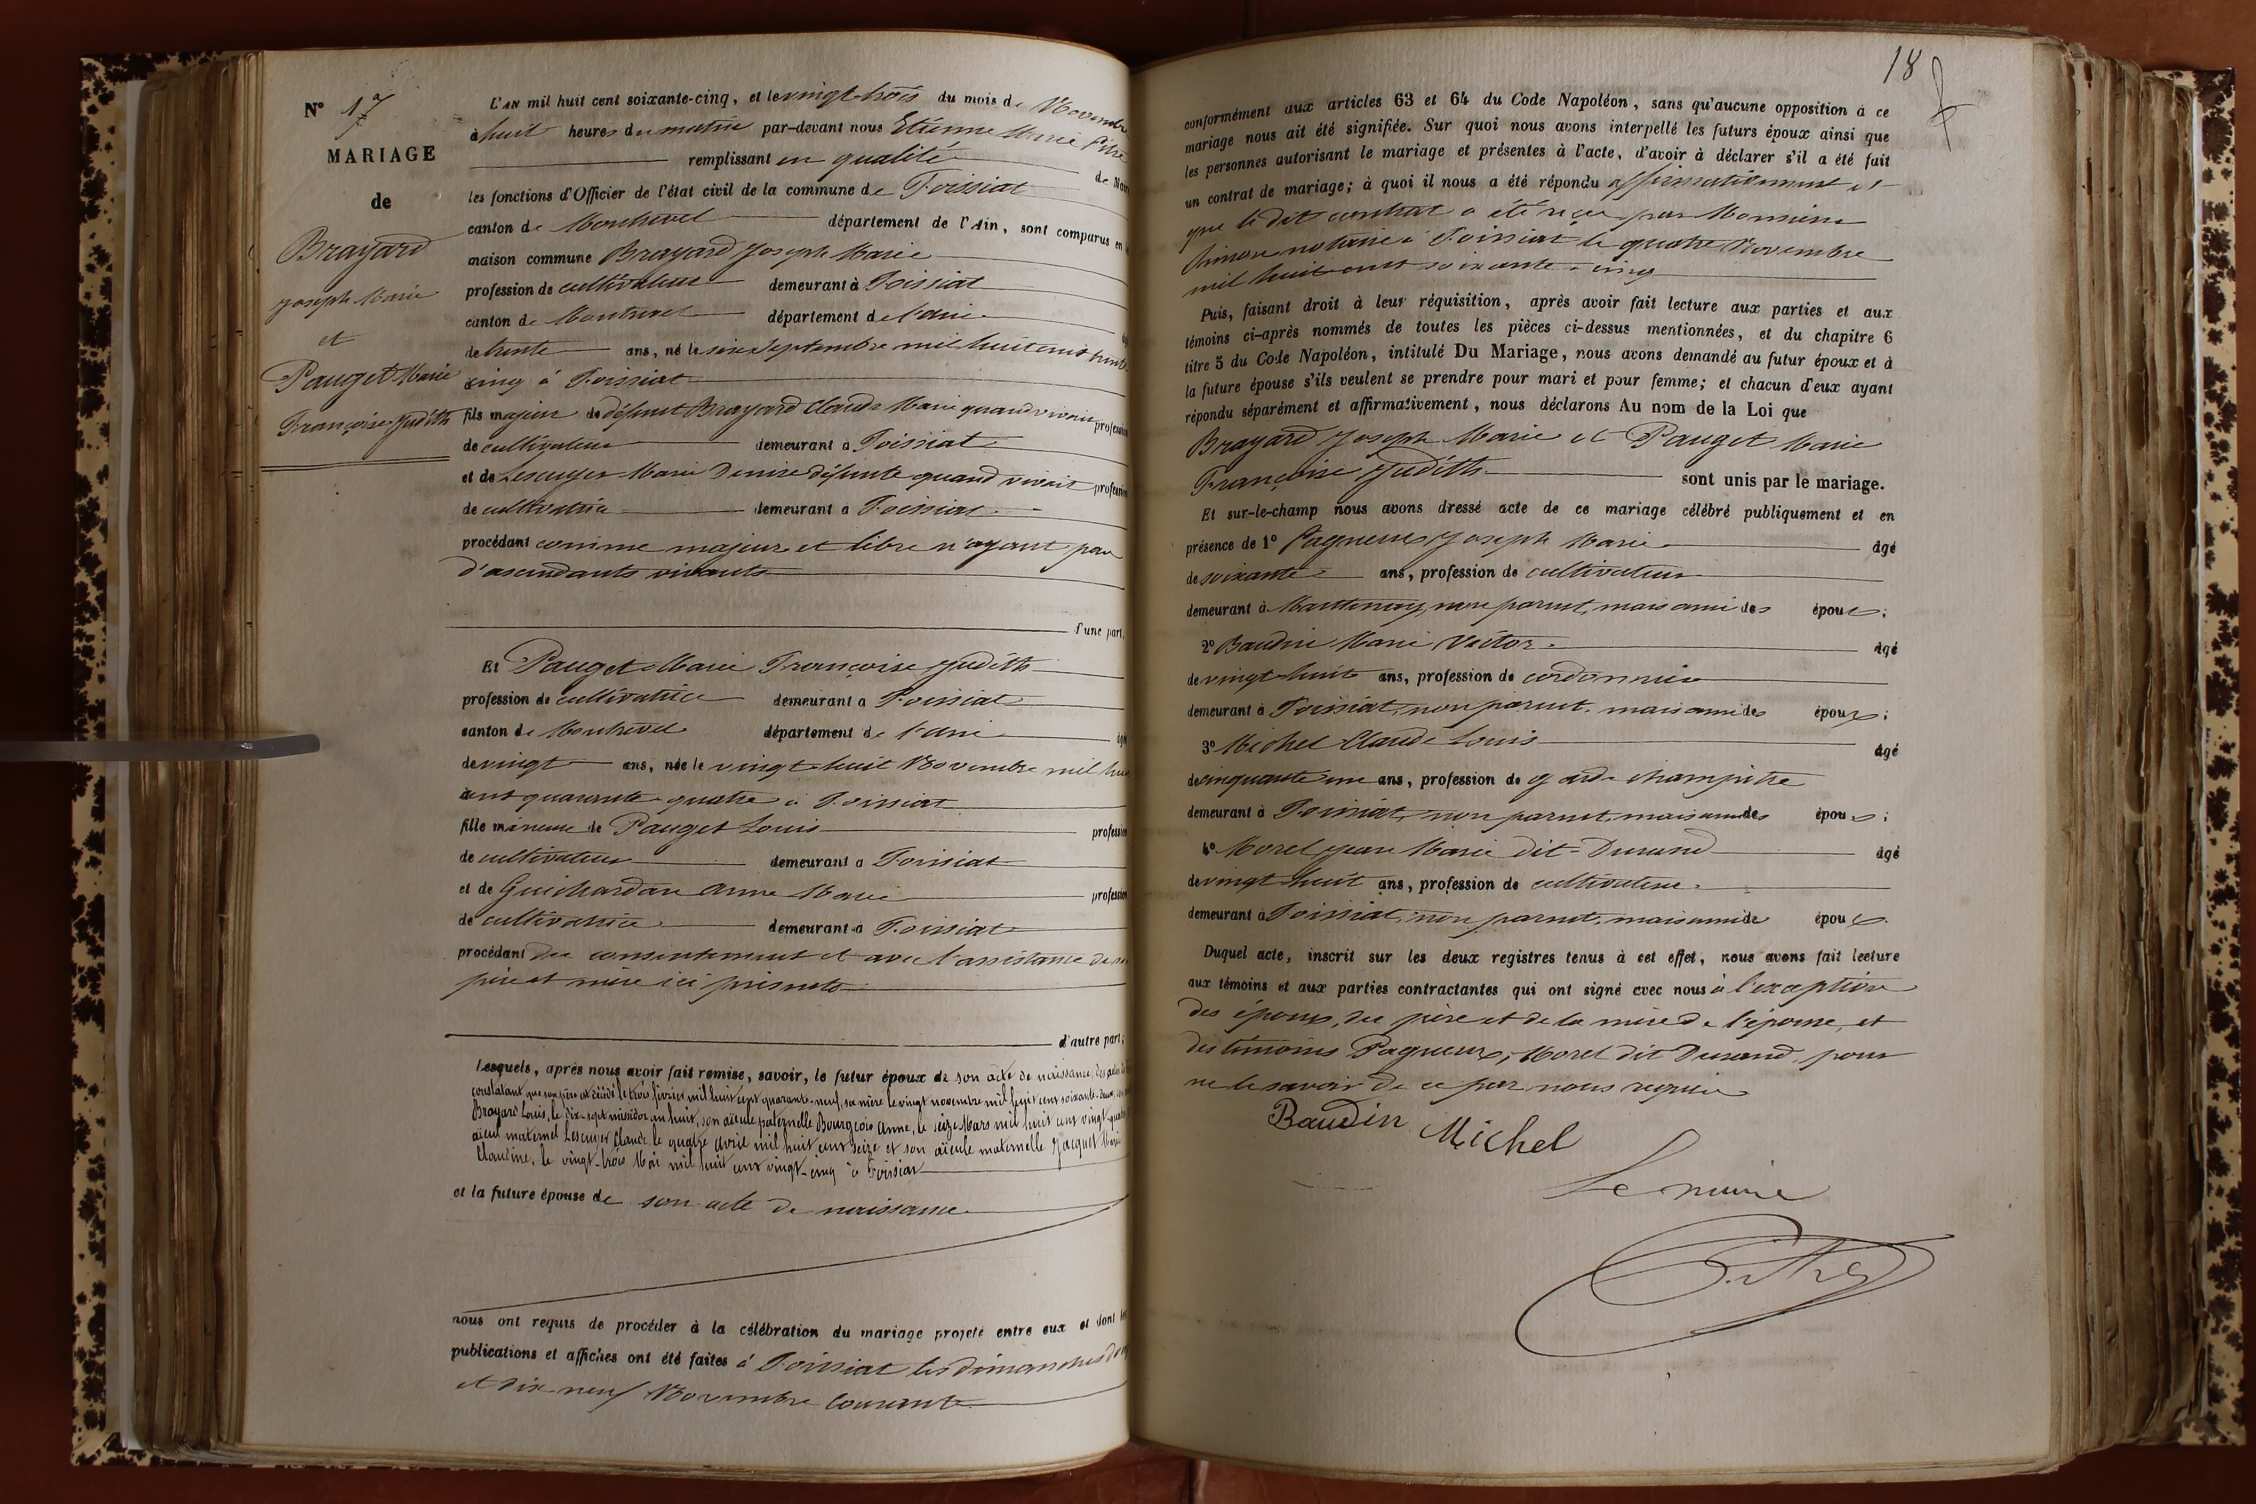 N° 17
MARIAGE
de
Brayard
Joseph Marie
et
Pauget Marie
Françoise Judith
L'AN mil huit cent soixante-cinq, et le vingt-trois du mois de Novembre
à huit heures du matin par-devant nous Etienne Marie Pitre
remplissant en qualité de Maire
les fonctions d'Officier de l'état civil de la commune de Foissiat
canton de Montrevel département de l'Ain, sont comparus en la
maison commune Brayard Joseph Marie
profession de cultivateur demeurant à Foissiat
canton de Montrevel département de l'ain
de trente ans, né le six Septembre mil huit cent trente
cinq à Foissiat
fils majeur de défunt Brayard Claude Marie quand vivait profession
de cultivateur demeurant à Foissiat
et de Lescuyer Marie Denise défunte quand vivait profession
de cultivatrice demeurant à Foissiat
procédant comme majeur et libre n'ayant pas
d'ascendants vivants
d'une part,
Et Pauget Marie Françoise Judith
profession de cultivatrice demeurant à Foissiat
canton de Montrevel département de l'ain
de vingt ans, née le vingt-huit Novembre mil huit
cent quarante-quatre à Foissiat
fille mineure de Pauget Louis profession
de cultivateur demeurant à Foissiat
et de Guichardan Anne Marie profession
de cultivatrice demeurant à Foissiat
procédant du consentement et avec l'assistance de ses
père et mère ici présents
d'autre part;
Lesquels, après nous avoir fait remise, savoir, le futur époux de son acte de naissance, des actes
constatant que son père est décédé le trois février mil huit cent quarante-neuf, sa mère le vingt novembre mil huit cent soixante-deux, son
Brayard Louis, le dix-sept messidor an huit, son aïeule paternelle Bourgeois Anne, le seize Mars mil huit cent vingt-quatre
aïeul maternel Lescuyer Claude le quatre avril mil huit cent seize et son aïeule maternelle Jacquet Marie
Claudine, le vingt-trois Mai mil huit cent vingt-cinq à Foissiat
et la future épouse de son acte de naissance
nous ont requis de procéder à la célébration du mariage projeté entre eux et dont les
publications et affiches ont été faites à Foissiat les dimanches douze
et dix-neuf Novembre courant
18
conformément aux articles 63 et 64 du Code Napoléon, sans qu'aucune opposition à ce
mariage nous ait été signifiée. Sur quoi nous avons interpellé les futurs époux ainsi que
les personnes autorisant le mariage et présentes à l'acte, d'avoir à déclarer s'il a été fait
un contrat de mariage; à quoi il nous a été répondu affirmativement et
que le dit contrat a été reçu par Monsieur
notaire à Foissiat le quatre Novembre
mil huit cent soixante-cinq
Puis, faisant droit à leur réquisition, après avoir fait lecture aux parties et aux
témoins ci-après nommés de toutes les pièces ci-dessus mentionnées, et du chapitre 6
titre 5 du Code Napoléon, intitulé Du Mariage, nous avons demandé au futur époux et à
la future épouse s'ils veulent se prendre pour mari et pour femme; et chacun d'eux ayant
répondu séparément et affirmativement, nous déclarons Au nom de la Loi que
Brayard Joseph Marie et Pauget Marie
Françoise Judith sont unis par le mariage.
Et sur-le-champ nous avons dressé acte de ce mariage célébré publiquement et en
présence de 1° Pagneux Joseph Marie âgé
de soixante ans, profession de cultivateur
demeurant à Mantenay, non parent, mais ami des époux;
2° Baudin Marie Victor âgé
de vingt-huit ans, profession de cordonnier
demeurant à Foissiat, non parent, mais ami des époux;
3° Michel Claude Louis âgé
de cinquante-un ans, profession de garde champêtre
demeurant à Foissiat, non parent, mais ami des époux;
4° Morel Jean Marie dit Durand âgé
de vingt-huit ans, profession de cultivateur
demeurant à Foissiat, non parent, mais ami de époux
Duquel acte, inscrit sur les deux registres tenus à cet effet, nous avons fait lecture
aux témoins et aux parties contractantes qui ont signé avec nous à l'exception
des époux, du père et de la mère de l'épouse, et
des témoins Pagneux, Morel dit Durand, pour
ne le savoir de ce par nous requis
Baudin Michel
Le maire
Pitre